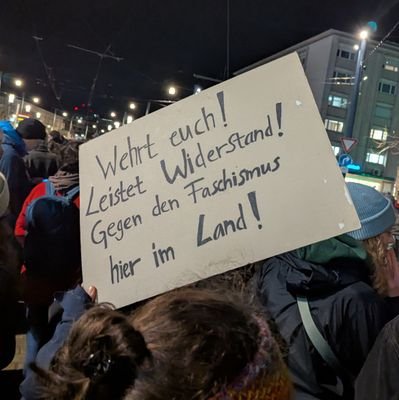 Wehrt euch!
Leistet Widerstand!
Gegen den Faschismus
hier im Land!